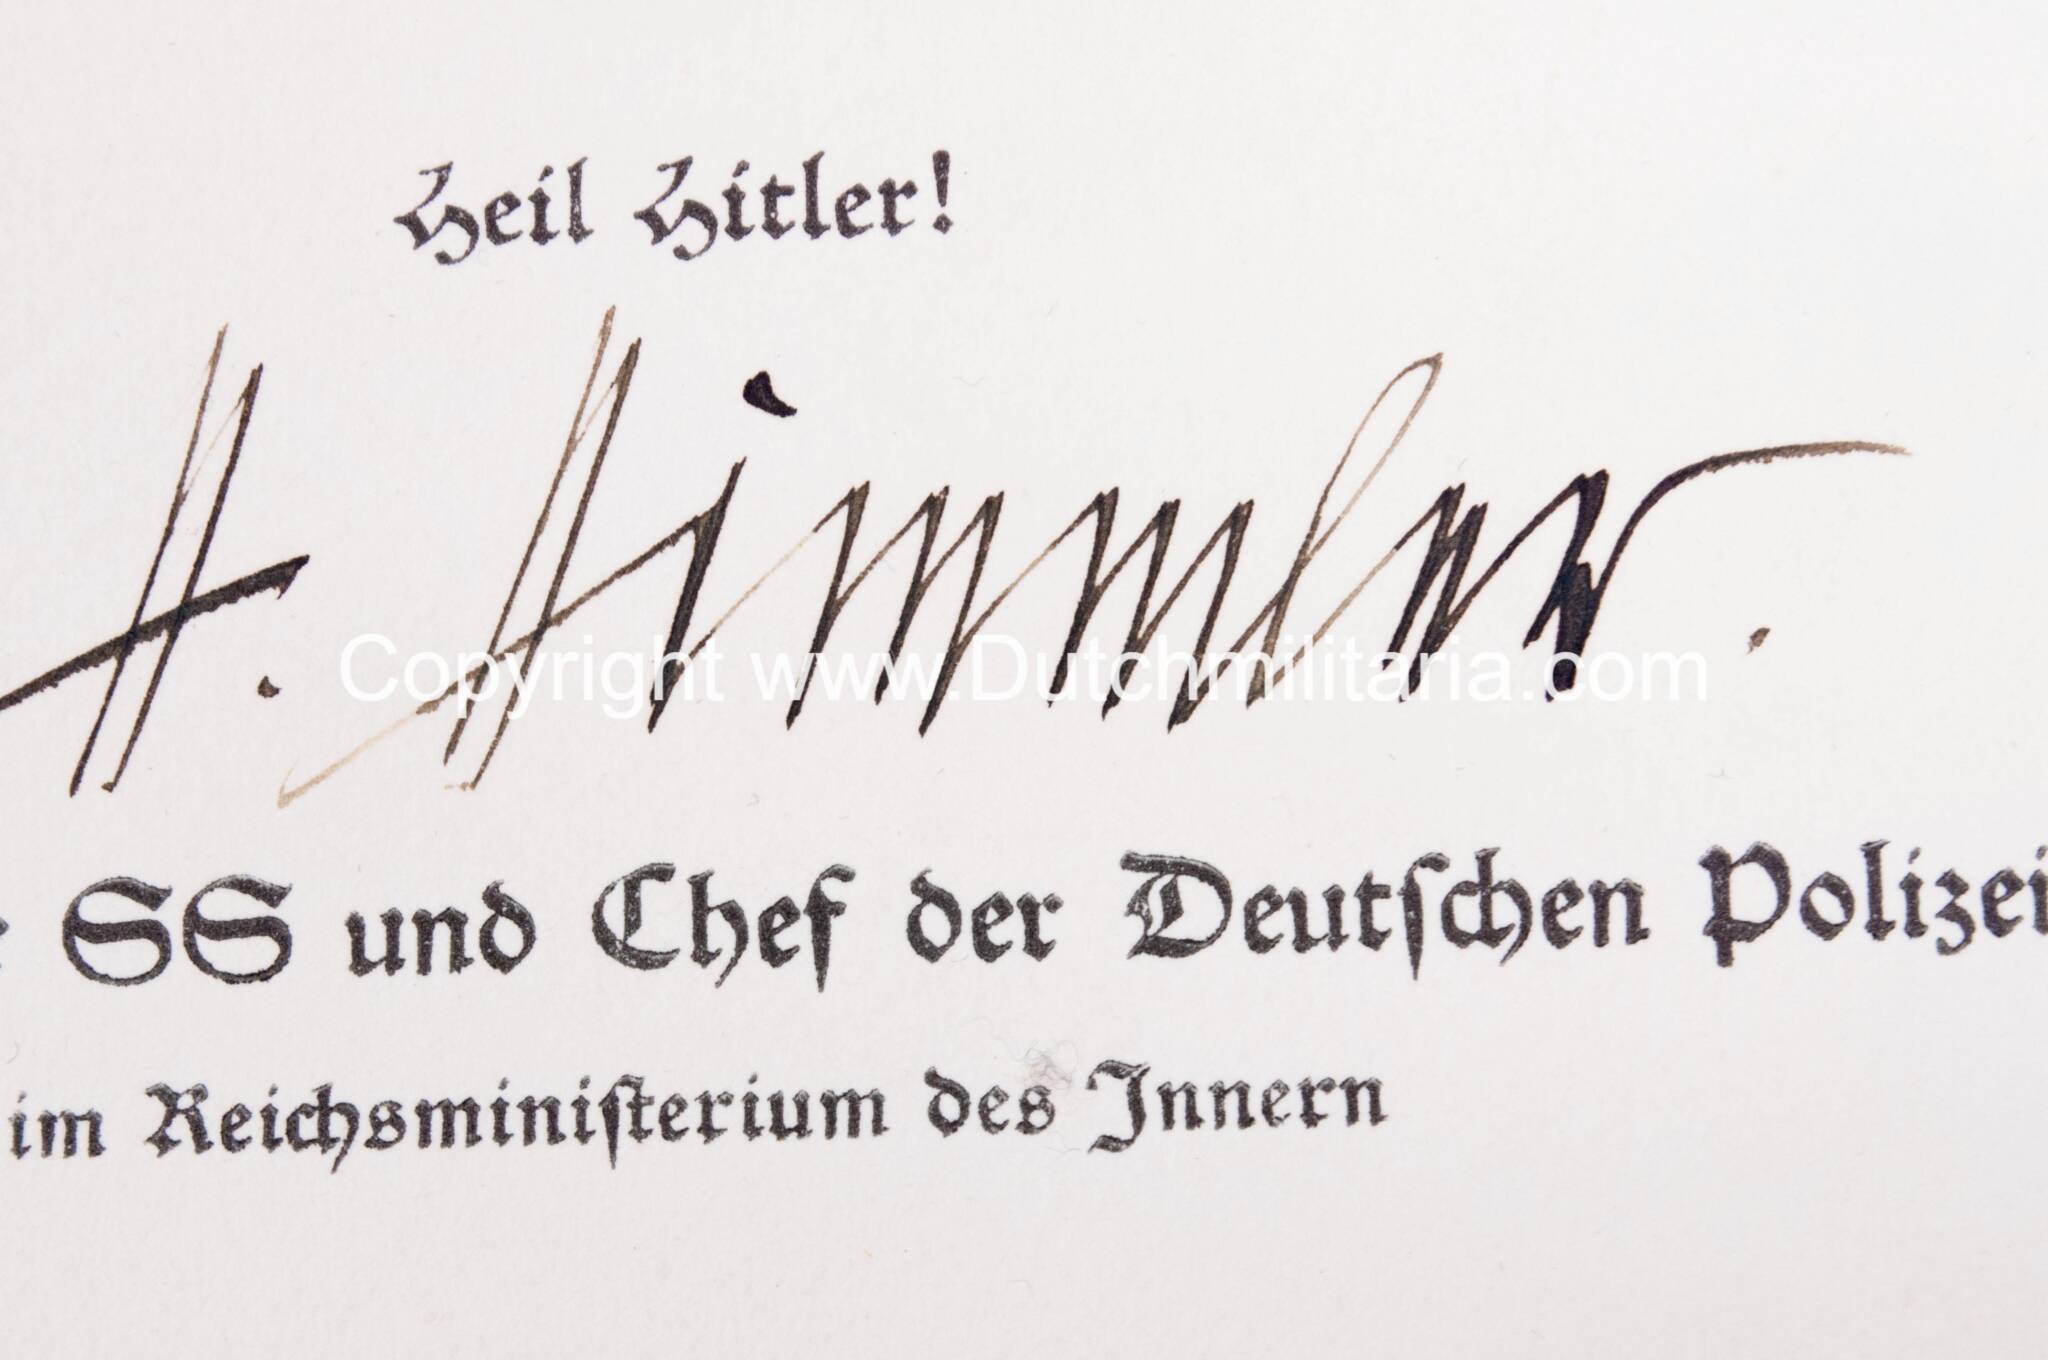 Heil Hitler!
H. Himmler.
Copyright www.Dutchmilitaria.com
SS und Chef der Deutſchen Polizei
im Reichsminiſterium des Innern